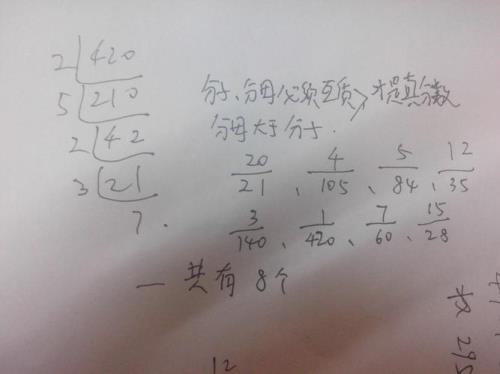 2 420
5 210
2 42
3 21
7.
分子、分母必须互质,才是真分数
分母大于分子.
20/21、4/105、5/84、12/35
3/140、1/420、7/60、15/28
一共有8个
12
295